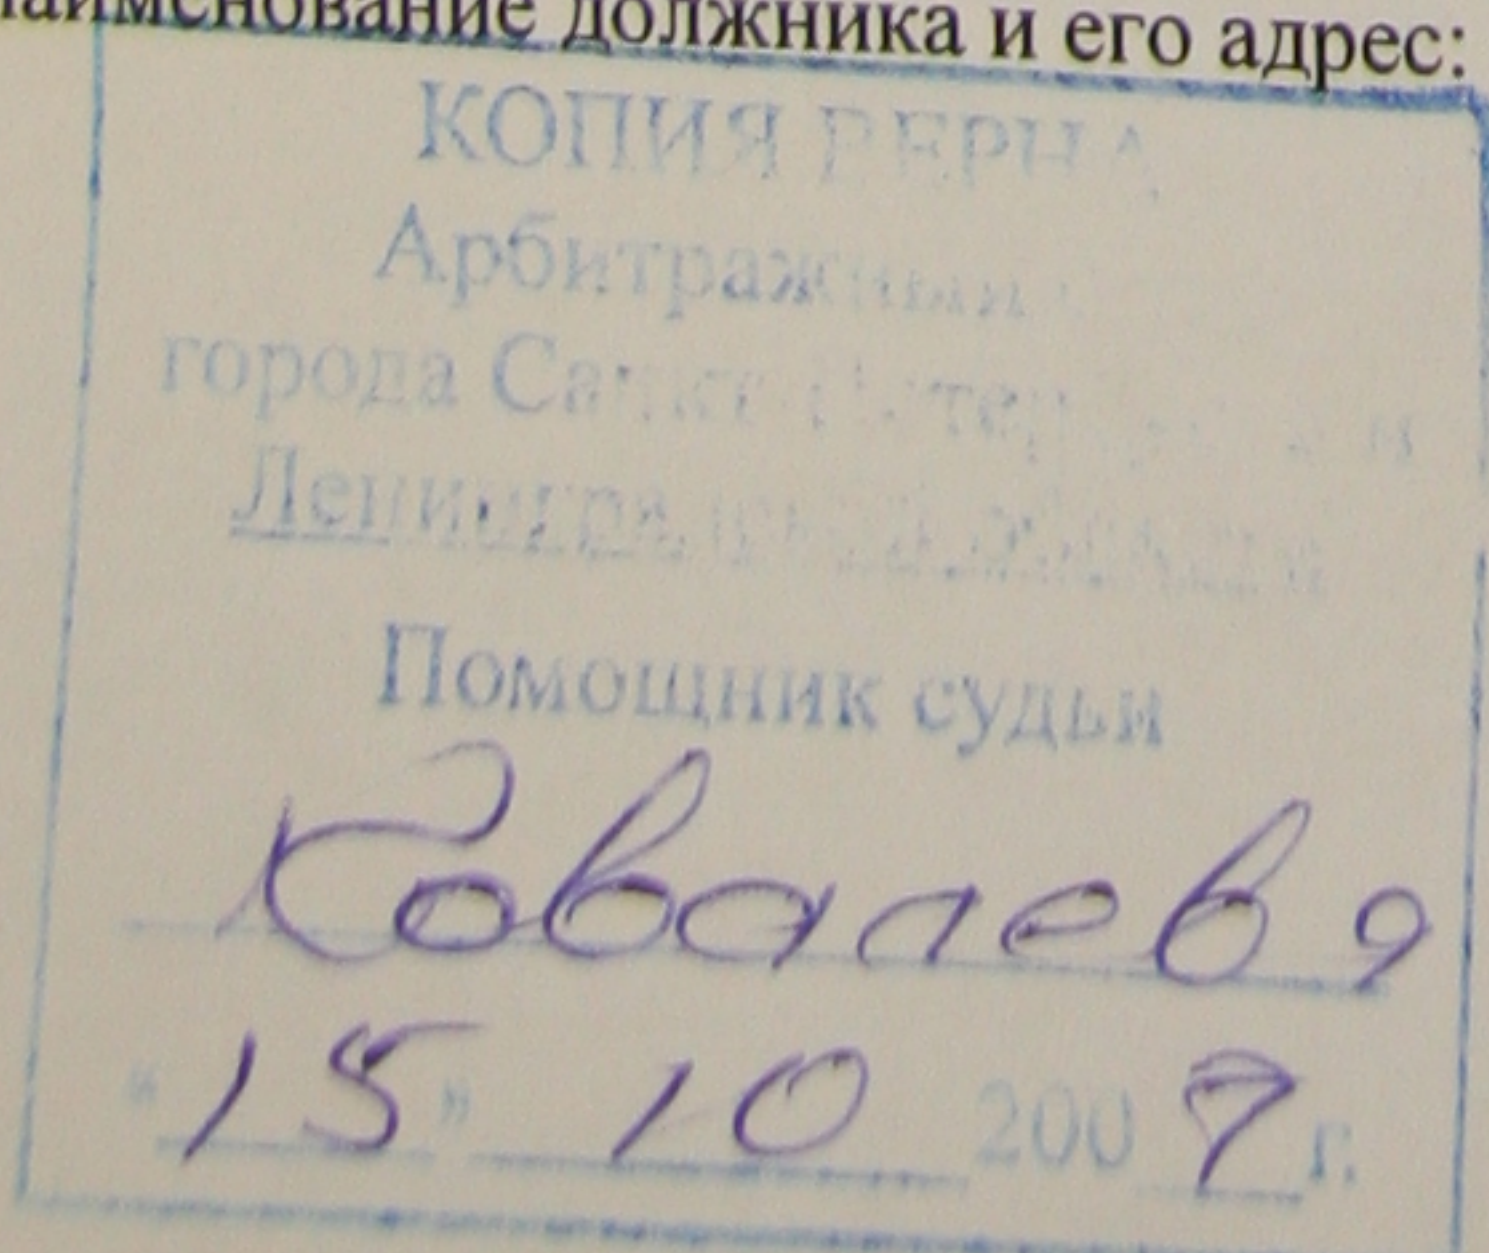 наименование должника и его адрес:
КОПИЯ ВЕРНА
Арбитражный
города Санкт-Петербурга и
Ленинградской области
Помощник судьи
Ковалева
"15" 10 2009 г.